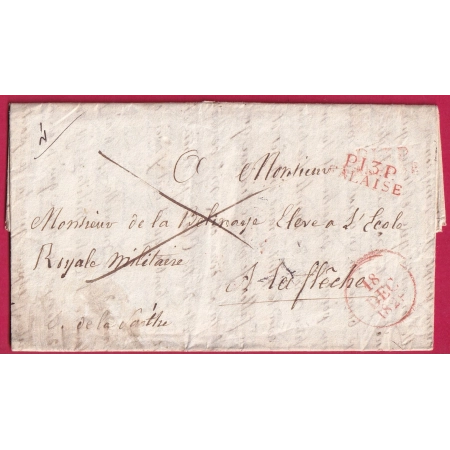 A Monsieur
P.13.P.
FALAISE
Monsieur de la Eleve a L'Ecole
Royale militaire
A La flêche
18
DEC
D. de la Sarthe